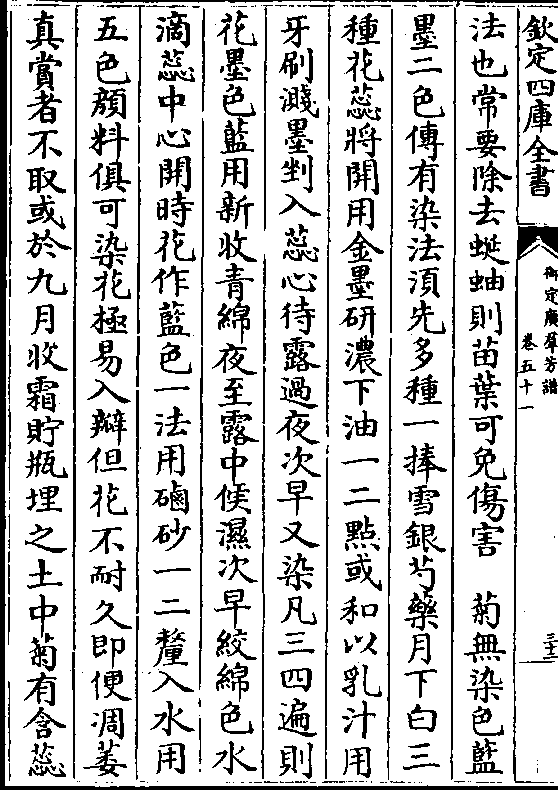 欽定四庫全書
御定廣羣芳譜
卷五十一
三十三
法也常要除去蜒蚰則苗葉可免傷害　菊無染色藍
墨二色傳有染法須先多種一捧雪銀芍藥月下白三
種花蕊將開用金墨研濃下油一二點或和以乳汁用
牙刷濺墨剉入蕊心待露過夜次早又染凡三四遍則
花墨色藍用新收青綿夜至露中候濕次早絞綿色水
滴蕊中心開時花作藍色一法用磠砂一二釐入水用
五色顔料俱可染花極易入瓣但花不耐久即便凋萎
真賞者不取或於九月收霜貯瓶埋之土中菊有含蕊